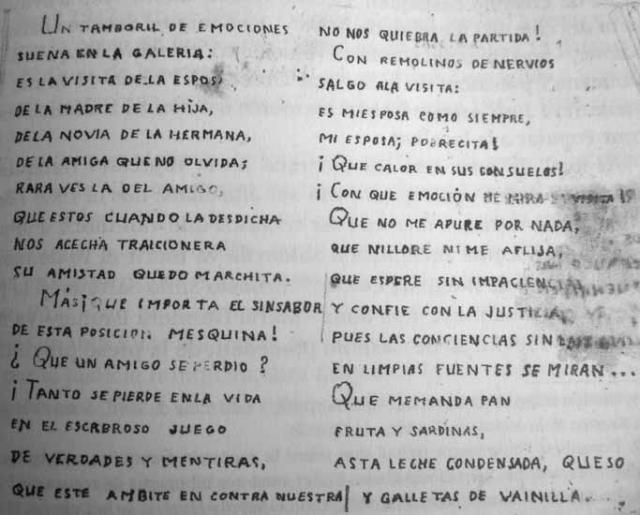 UN TAMBORIL DE EMOCIONES
SUENA EN LA GALERIA:
ES LA VISITA DE LA ESPOSA
DE LA MADRE DE LA HIJA,
DE LA NOVIA DE LA HERMANA,
DE LA AMIGA QUE NO OLVIDA;
RARA VES LA DEL AMIGO,
QUE ESTOS CUANDO LA DESDICHA
NOS ACECHA TRAICIONERA
SU AMISTAD QUEDO MARCHITA.
MÁS ¡QUE IMPORTA EL SINSABOR
DE ESTA POSICION MESQUINA!
¿ QUE UN AMIGO SE PERDIO ?
¡ TANTO SE PIERDE EN LA VIDA
EN EL ESCABROSO JUEGO
DE VERDADES Y MENTIRAS,
QUE ESTE AMBITE EN CONTRA NUESTRA
NO NOS QUIEBRA LA PARTIDA!
CON REMOLINOS DE NERVIOS
SALGO A LA VISITA:
ES MI ESPOSA COMO SIEMPRE,
MI ESPOSA; POBRECITA!
¡ QUE CALOR EN SUS CONSUELOS!
¡ CON QUE EMOCIÓN ME MIRA
QUE NO ME APURE POR NADA,
QUE NI LLORE NI ME AFLIJA,
QUE ESPERE SIN IMPACIENCIA
Y CONFIE CON LA JUSTICIA,
PUES LAS CONCIENCIAS SIN
EN LIMPIAS FUENTES SE MIRAN...
QUE ME MANDA PAN
FRUTA Y SARDINAS,
ASTA LECHE CONDENSADA, QUESO
Y GALLETAS DE VAINILLA.